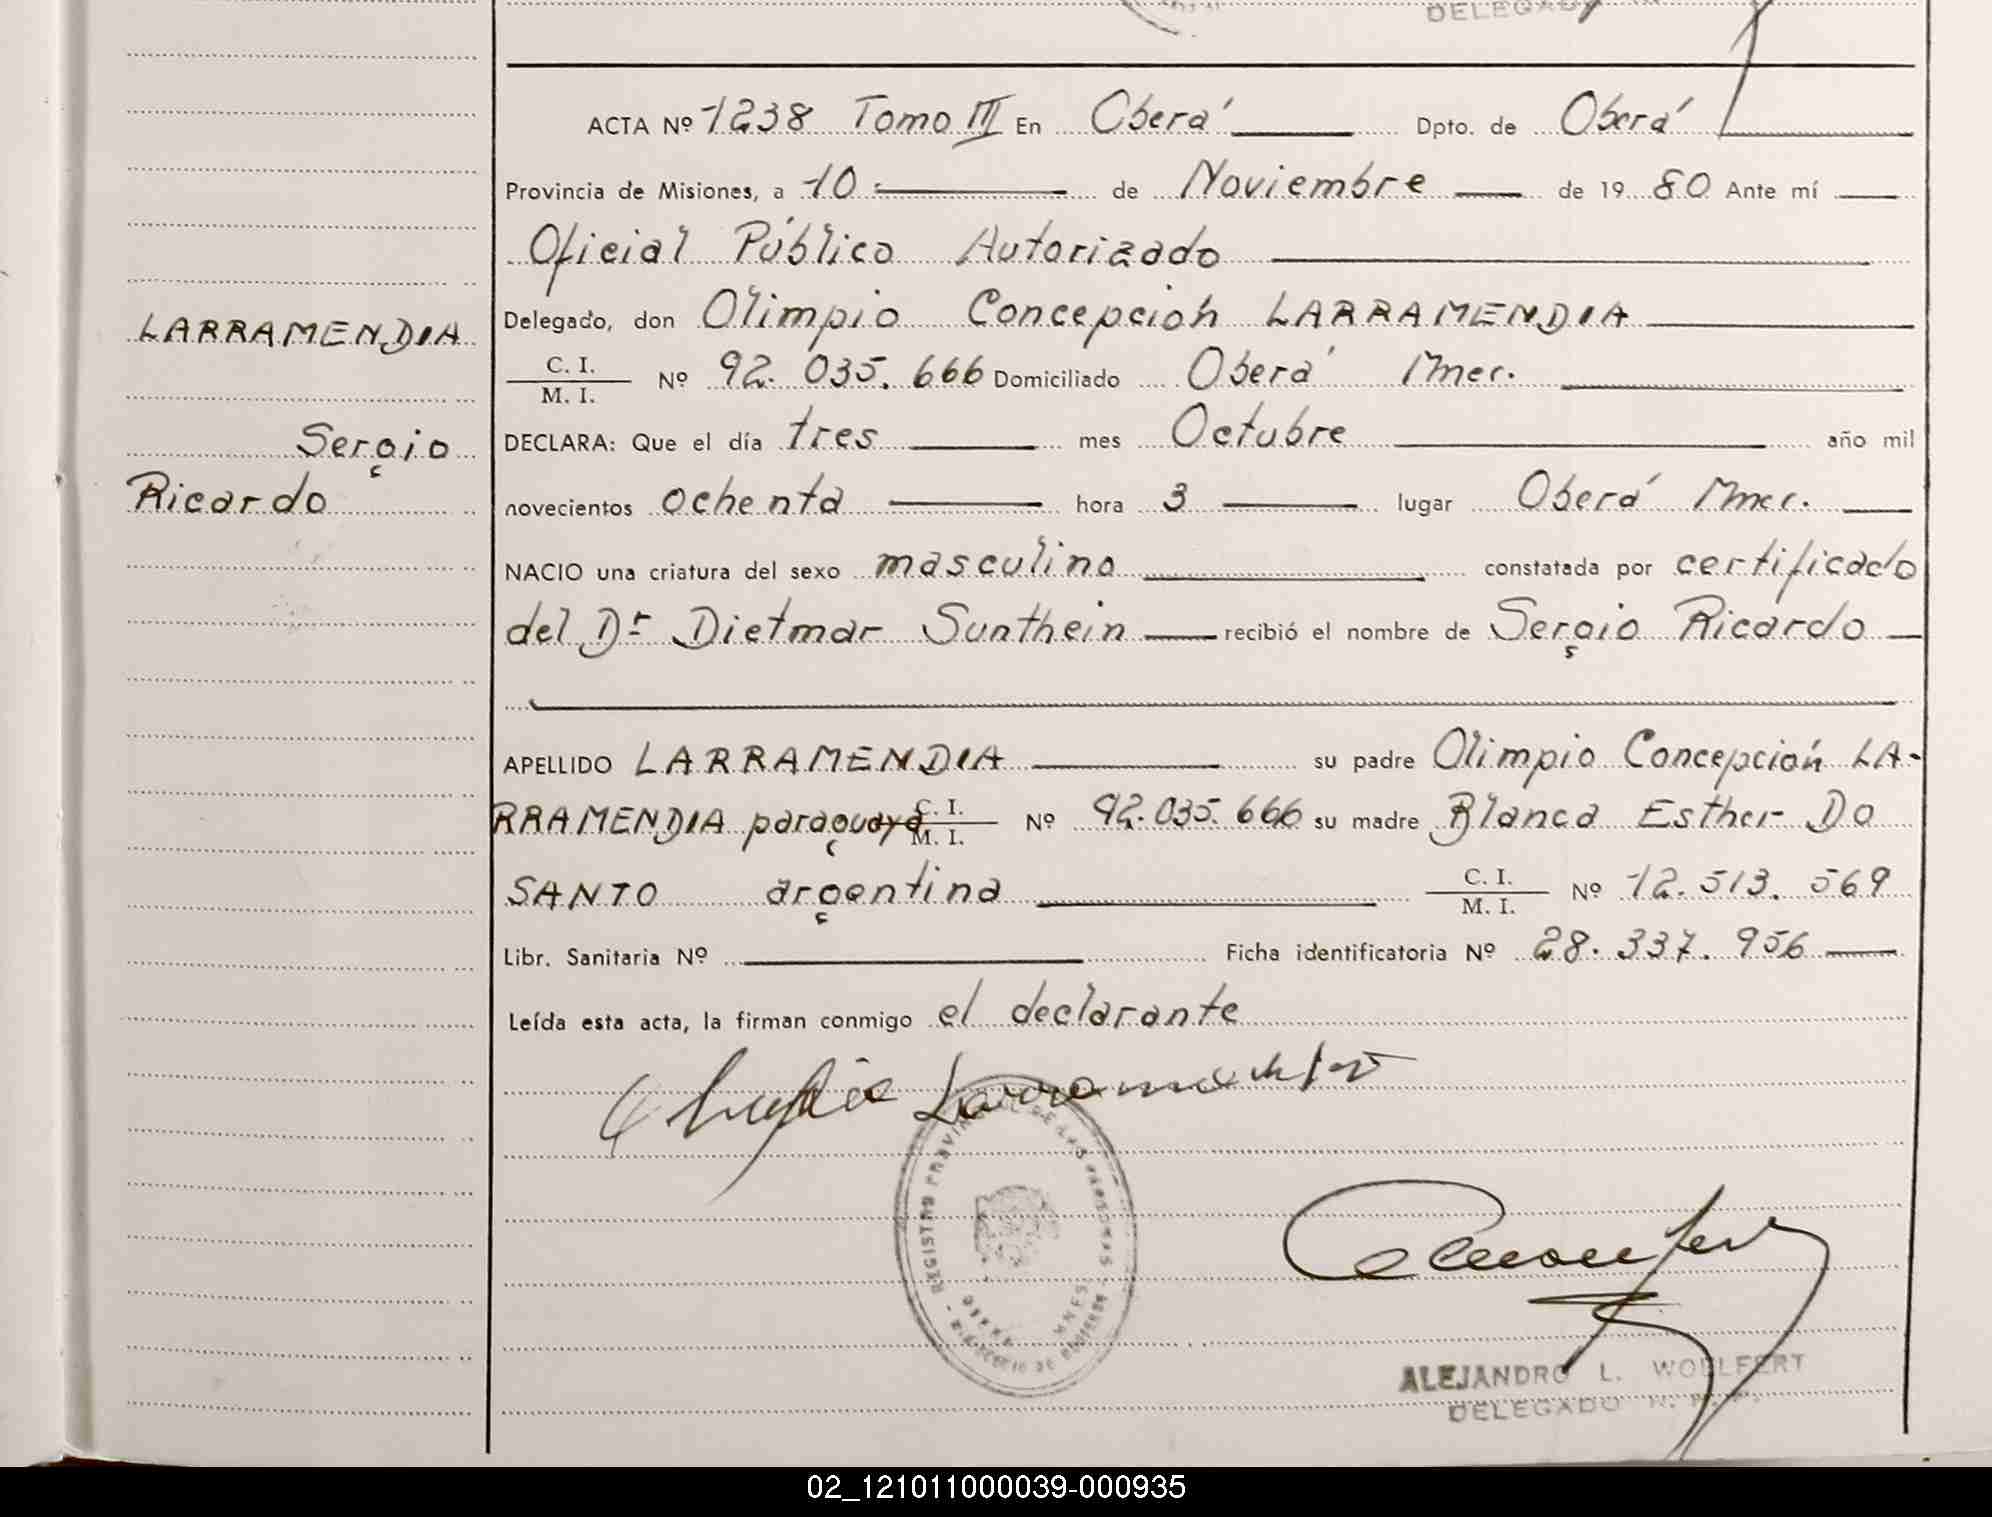 DELEGADO
ACTA Nº 1238 Tomo III En Oberá Dpto. de Oberá
Provincia de Misiones, a 10 de Noviembre de 1980 Ante mí
Oficial Público Autorizado
Delegado, don Olimpio Concepción LARRAMENDIA
LARRAMENDIA
C. I.
M. I. Nº 92.035.666 Domiciliado Oberá Mnes.
Sergio
DECLARA: Que el día tres mes Octubre año mil
Ricardo
novecientos ochenta hora 3 lugar Oberá Mnes.
NACIO una criatura del sexo masculino constatada por certificado
del Dr Dietmar Sunthein recibió el nombre de Sergio Ricardo
APELLIDO LARRAMENDIA su padre Olimpio Concepción LA-
RRAMENDIA paraguaya C. I. M. I. Nº 92.035.666 su madre Blanca Esther DO
SANTO argentina C. I. M. I. Nº 12.513.569
Libr. Sanitaria Nº Ficha identificatoria Nº 28.337.956
Leída esta acta, la firman conmigo el declarante
REGISTRO PROVINCIAL DE LAS PERSONAS
MINISTERIO DE GOBIERNO
OBERA MNES
ALEJANDRO L. WOLLFERT
DELEGADO R. P. P.
02_121011000039-000935